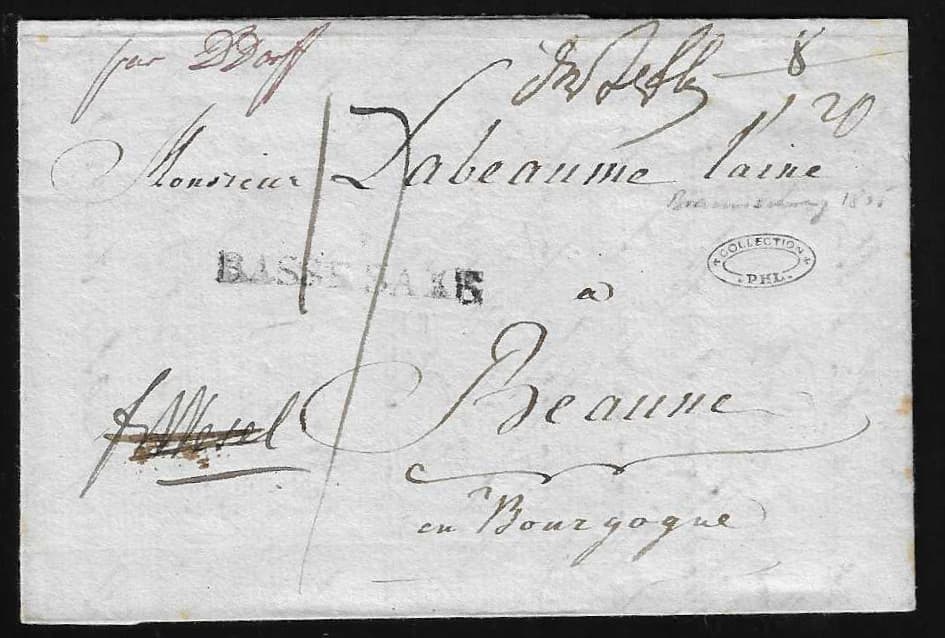 par DDorff
8
20
Monsieur Labeaume l'ainé
17
COLLECTION
PHL.
BASSE SAXE
a
Beaune
fr Wesel
en Bourgogne